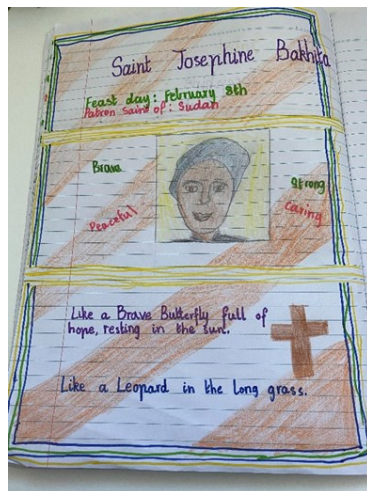 Saint Josephine Bakhita
Feast day: February 8th
Patron Saint of: Sudan
Brave
Strong
Peaceful
Caring
Like a Brave Butterfly full of
hope, resting in the sun.
Like a Leopard in the long grass.